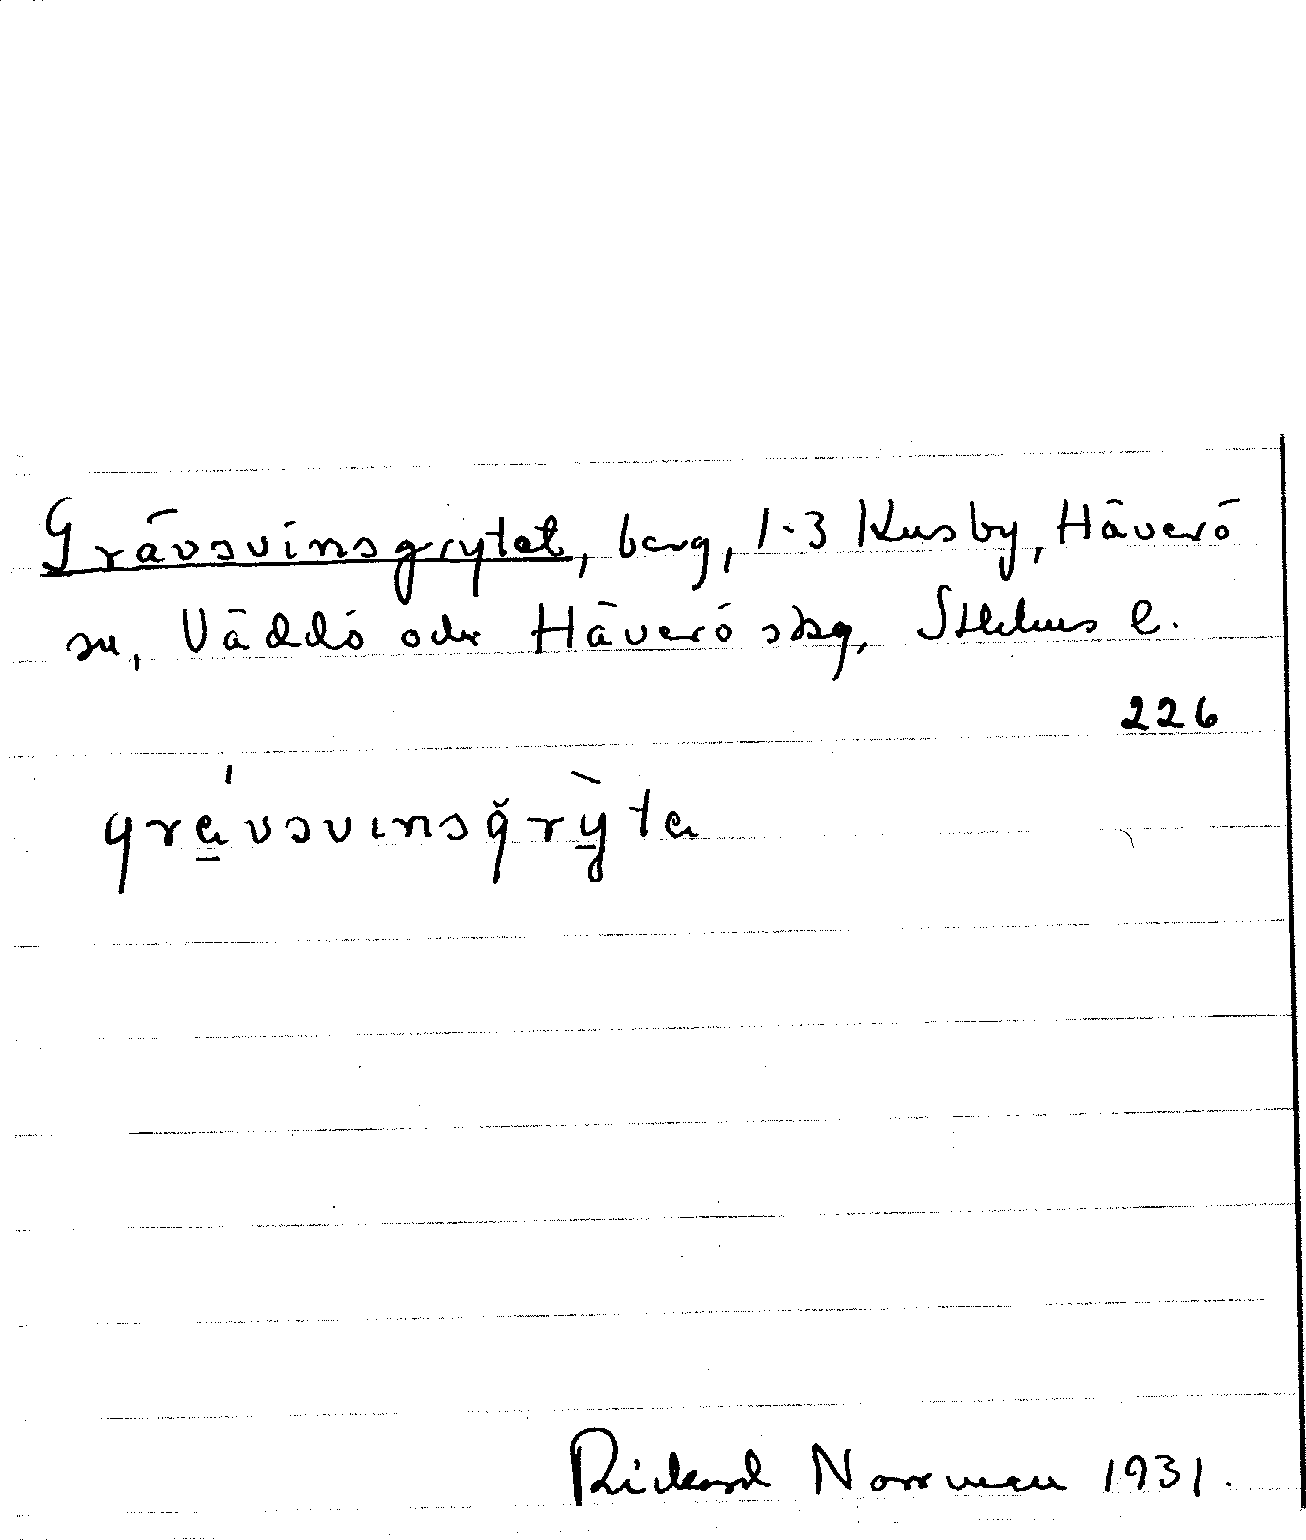 Grävsvinsgrytet, berg, 1-3 Kusby, Häverö
sn, Väddö och Häverö skg, Sthlms l.
226
grävsvinsgryta
Rickard Norrman 1931.